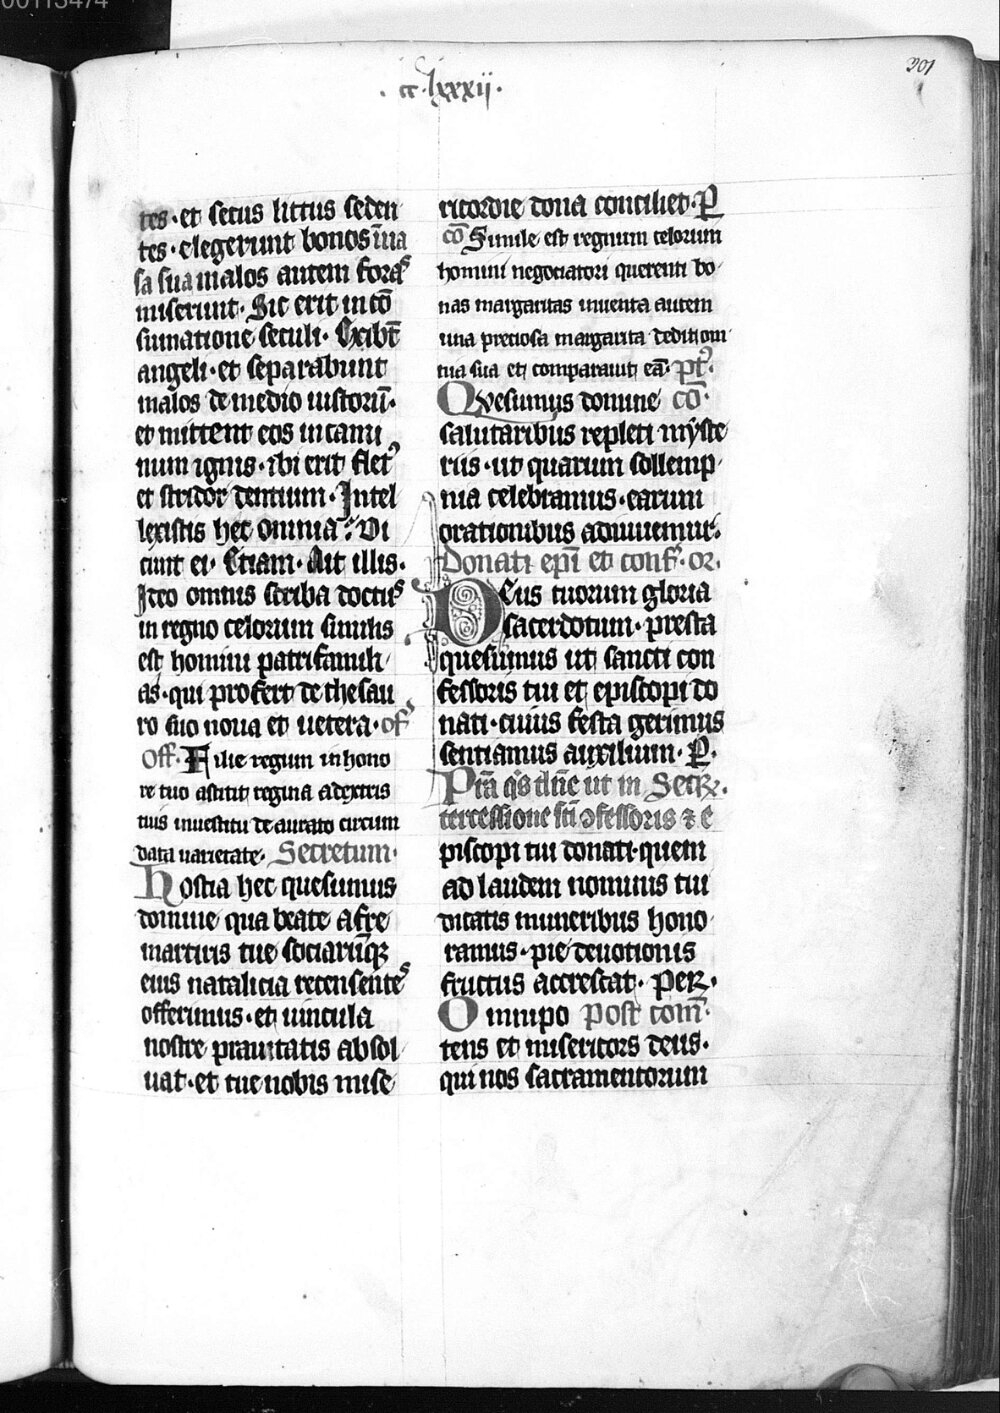 00113474
· cc · lxxxij ·
201
tes · et secus littus seden
tes · elegerunt bonos ī ua
sa sua malos autem foras
miserunt · Sic erit in cō
sumatione seculi · Exibūt
angeli · et separabunt
malos de medio iustorū ·
et mittent eos in cami
num ignis · ibi erit flet9
et stridor dentium · Intel
lexistis hec omnia? Di
cunt ei · Etiam · Ait illis ·
Ideo omnis scriba doctus
in regno celorum similis
est homini patrifamili
as · qui profert de thesau
ro suo noua et uetera · of
Off · Filie regum in hono
re tuo astitit regina a dextris
tuis in uestitu de aurato circum
data uarietate · Secretum ·
Hostia hec quesumus
domine qua beate afre
martiris tue sociarūq3
eius natalicia recensentes
offerimus · et uincula
nostre prauitatis absol
uat · et tue nobis mise
ricordie dona conciliet · P
cō Simile est regnum celorum
homini negotiatori querenti bo
nas margaritas inuenta autem
una preciosa margarita dedit om
nia sua et comparauit eā · pt9 ·
Quesumus domine cō ·
salutaribus repleti myste
riis · ut quarum sollemp
nia celebramus · earum
orationibus adiuuemur ·
Donati epī et conf · or ·
Deus tuorum gloria
sacerdotum · presta
quesumus ut sancti con
fessoris tui et episcopi do
nati · cuius festa gerimus
sentiamus auxilium · P ·
Pr̄a q̄s dn̄e ut in Secr ·
tercessione sc̄i ↄfessoris ⁊ e
piscopi tui donati · quem
ad laudem nominis tui
dicatis muneribus hono
ramus · pie deuotionis
fructus accrescat · Per ·
Omnipo post com̄ ·
tens et misericors deus ·
qui nos sacramentorum